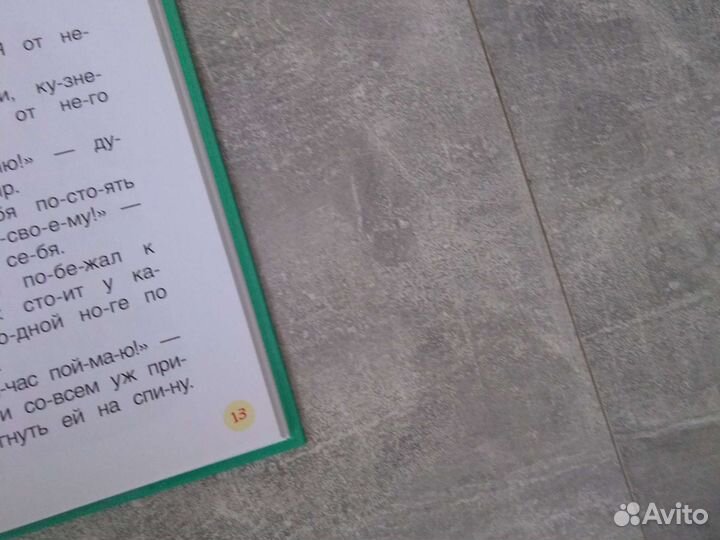 от не-
ку-зне-
от не-го
— ду-
по-сто-ять
-сво-е-му!» —
се-бя.
по-бе-жал к
сто-ит у ка-
но-ге по
пой-ма-ю!» —
и со-всем уж при-
ей на спи-ну.
13
Avito